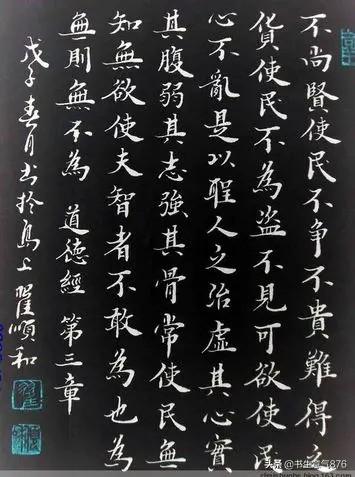 不尚賢使民不争不貴難得之
貨使民不為盗不見可欲使民
心不亂是以聖人之治虛其心實
其腹弱其志強其骨常使民無
知無欲使夫智者不敢為也為
無則無不為 道德經 第三章
戊子春月书於島上 翟順和
头条 @书生意气876